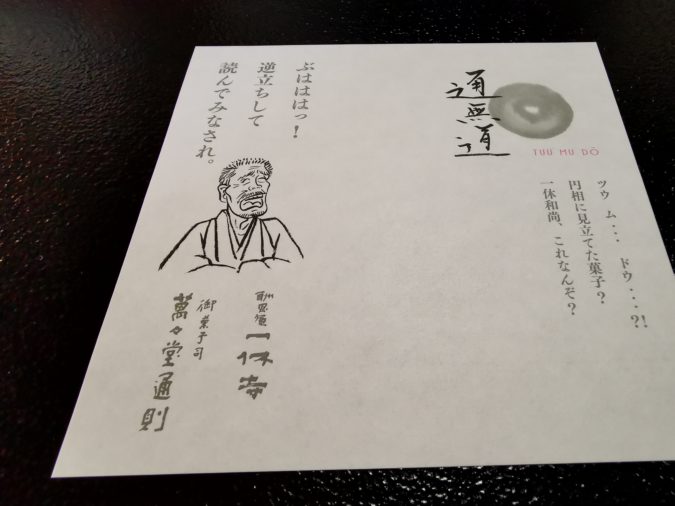 通無道
TUU MU DŌ
ツウ ム… ドウ…?!
円相に見立てた菓子？
一休和尚、これなんぞ？
ぶはははっ！
逆立ちして
読んでみなされ。
酬恩庵 一休寺
御菓子司
萬々堂通則